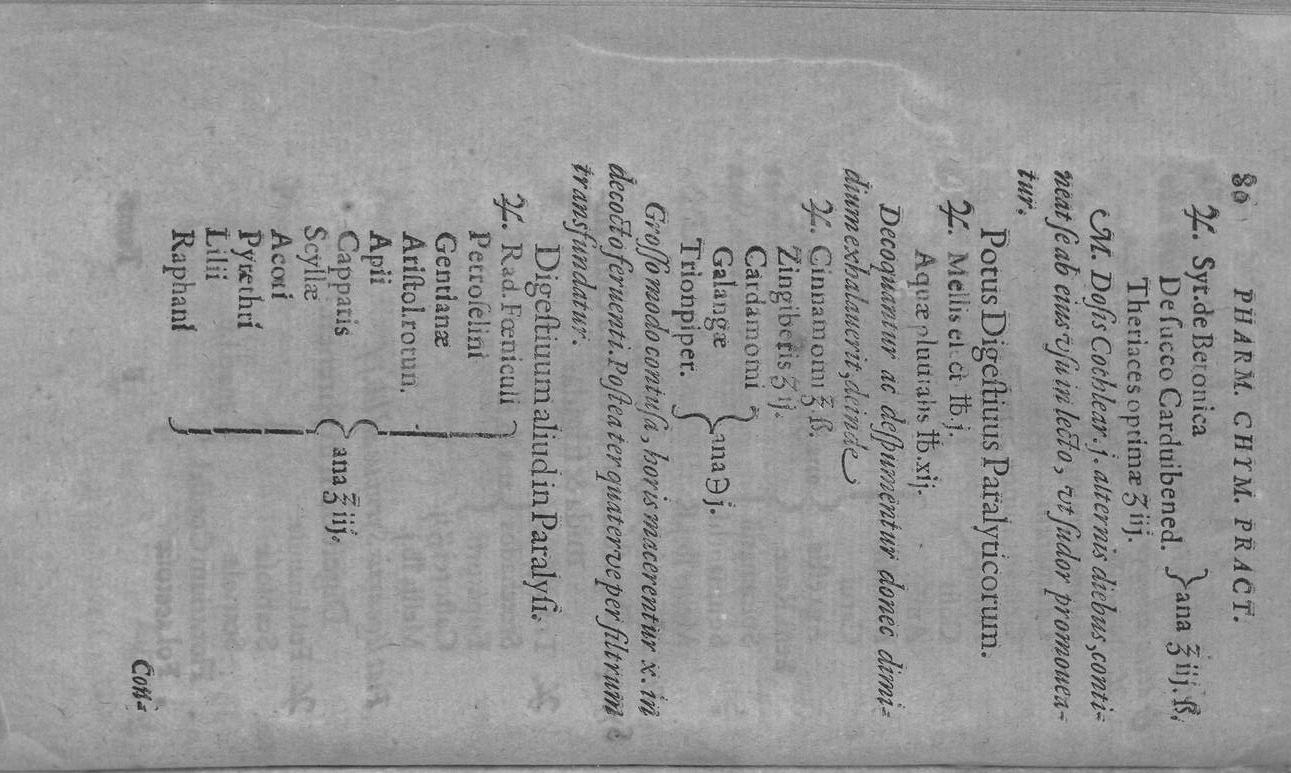 80 PHARM. CHYM. PRACT.
℞. Syr. de Betonica
De ſucco Carduibened. } ana ℥ iij. ß.
Theriaces optimæ ʒ iij.
M. Doſis Cochlear. j. alternis diebus, conti-
neat ſe ab eius vſu in lecto, vt ſudor promouea-
tur.
Potus Digeſtiuus Paralyticorum.
℞. Mellis elect ℔. j.
Aquæ pluuialis ℔. xij.
Decoquantur ac deſpumentur donec dimi-
dium exhalauerit, deinde
℞. Cinnamomi ℥ ß.
Zingiberis ʒ ij.
Cardamomi
Galangæ } ana ℈ j.
Trionpiper.
Groſſo modo contuſa, horis macerentur x. in
decocto feruenti. Poſtea ter quaterve per filtrum
transfundatur.
Digeſtiuum aliud in Paralyſi.
℞. Rad. Fœniculi
Petroſelini
Gentianæ
Ariſtol. rotun.
Apii
Capparis } ana ℥ iij.
Scyllæ
Acori
Pyrethri
Lilii
Raphani
Con-